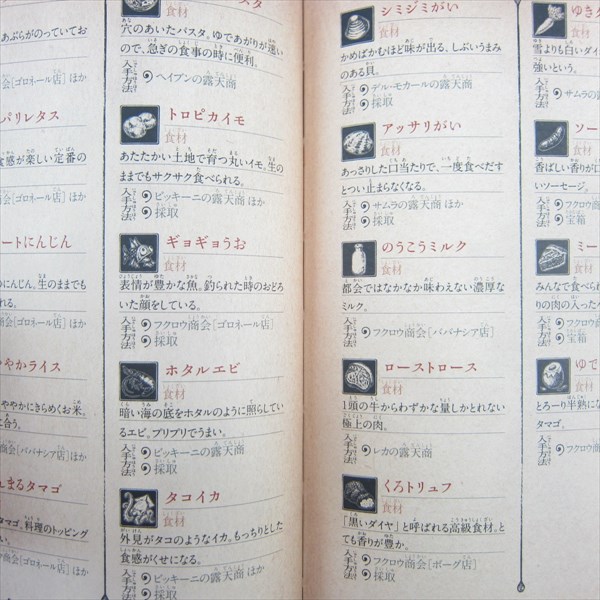 あぶらがのっていてお
商会［ゴロネール店］ほか
パリレタス
食感が楽しい定番の
ートにんじん
のにんじん。生のままでも
フクロウ商会［ゴロネール店］ほか
やかライス
ややかにきらめくお米。
合う。
商会［ババナシア店］ほか
まるタマゴ
タマゴ。料理のトッピング
商会［ゴロネール店］ほか
スタ
食材
穴のあいたパスタ。ゆであがりが速い
ので、急ぎの食事の時に便利。
入手方法 ヘイブンの露天商
トロピカイモ
食材
あたたかい土地で育つ丸いイモ。生の
ままでもサクサク食べられる。
入手方法 ピッキーニの露天商 ほか
採取
ギョギョうお
食材
表情が豊かな魚。釣られた時のおどろ
いた顔をしている。
入手方法 フクロウ商会［ゴロネール店］
採取
ホタルエビ
食材
暗い海の底をホタルのように照らしてい
るエビ。プリプリでうまい。
入手方法 ピッキーニの露天商
採取
タコイカ
食材
外見がタコのようなイカ。もっちりとした
食感がくせになる。
入手方法 ピッキーニの露天商 ほか
採取
シミジミがい
食材
かめばかむほど味が出る、しぶいうまみ
のある貝。
入手方法 デル・モカールの露天商
採取
アッサリがい
食材
あっさりした口当たりで、一度食べだす
とつい止まらなくなる。
入手方法 サムラの露天商 ほか
採取
のうこうミルク
食材
都会ではなかなか味わえない濃厚な
ミルク。
入手方法 フクロウ商会［ババナシア店］
ローストロース
食材
1頭の牛からわずかな量しかとれない
極上の肉。
入手方法 レカの露天商
くろトリュフ
食材
「黒いダイヤ」と呼ばれる高級食材。と
ても香りが豊か。
入手方法 フクロウ商会［ボーグ店］
採取
ゆき
雪よりも白いダイ
強いという。
入手方法 サムラの露
ソー
香ばしい香りが口
いソーセージ。
入手方法 フクロウ商
宝箱
ミー
みんなで食べら
りの肉の入ったパ
入手方法 フクロウ商
宝箱
ゆで
とろーり半熟にな
タマゴ。
入手方法 フクロウ商